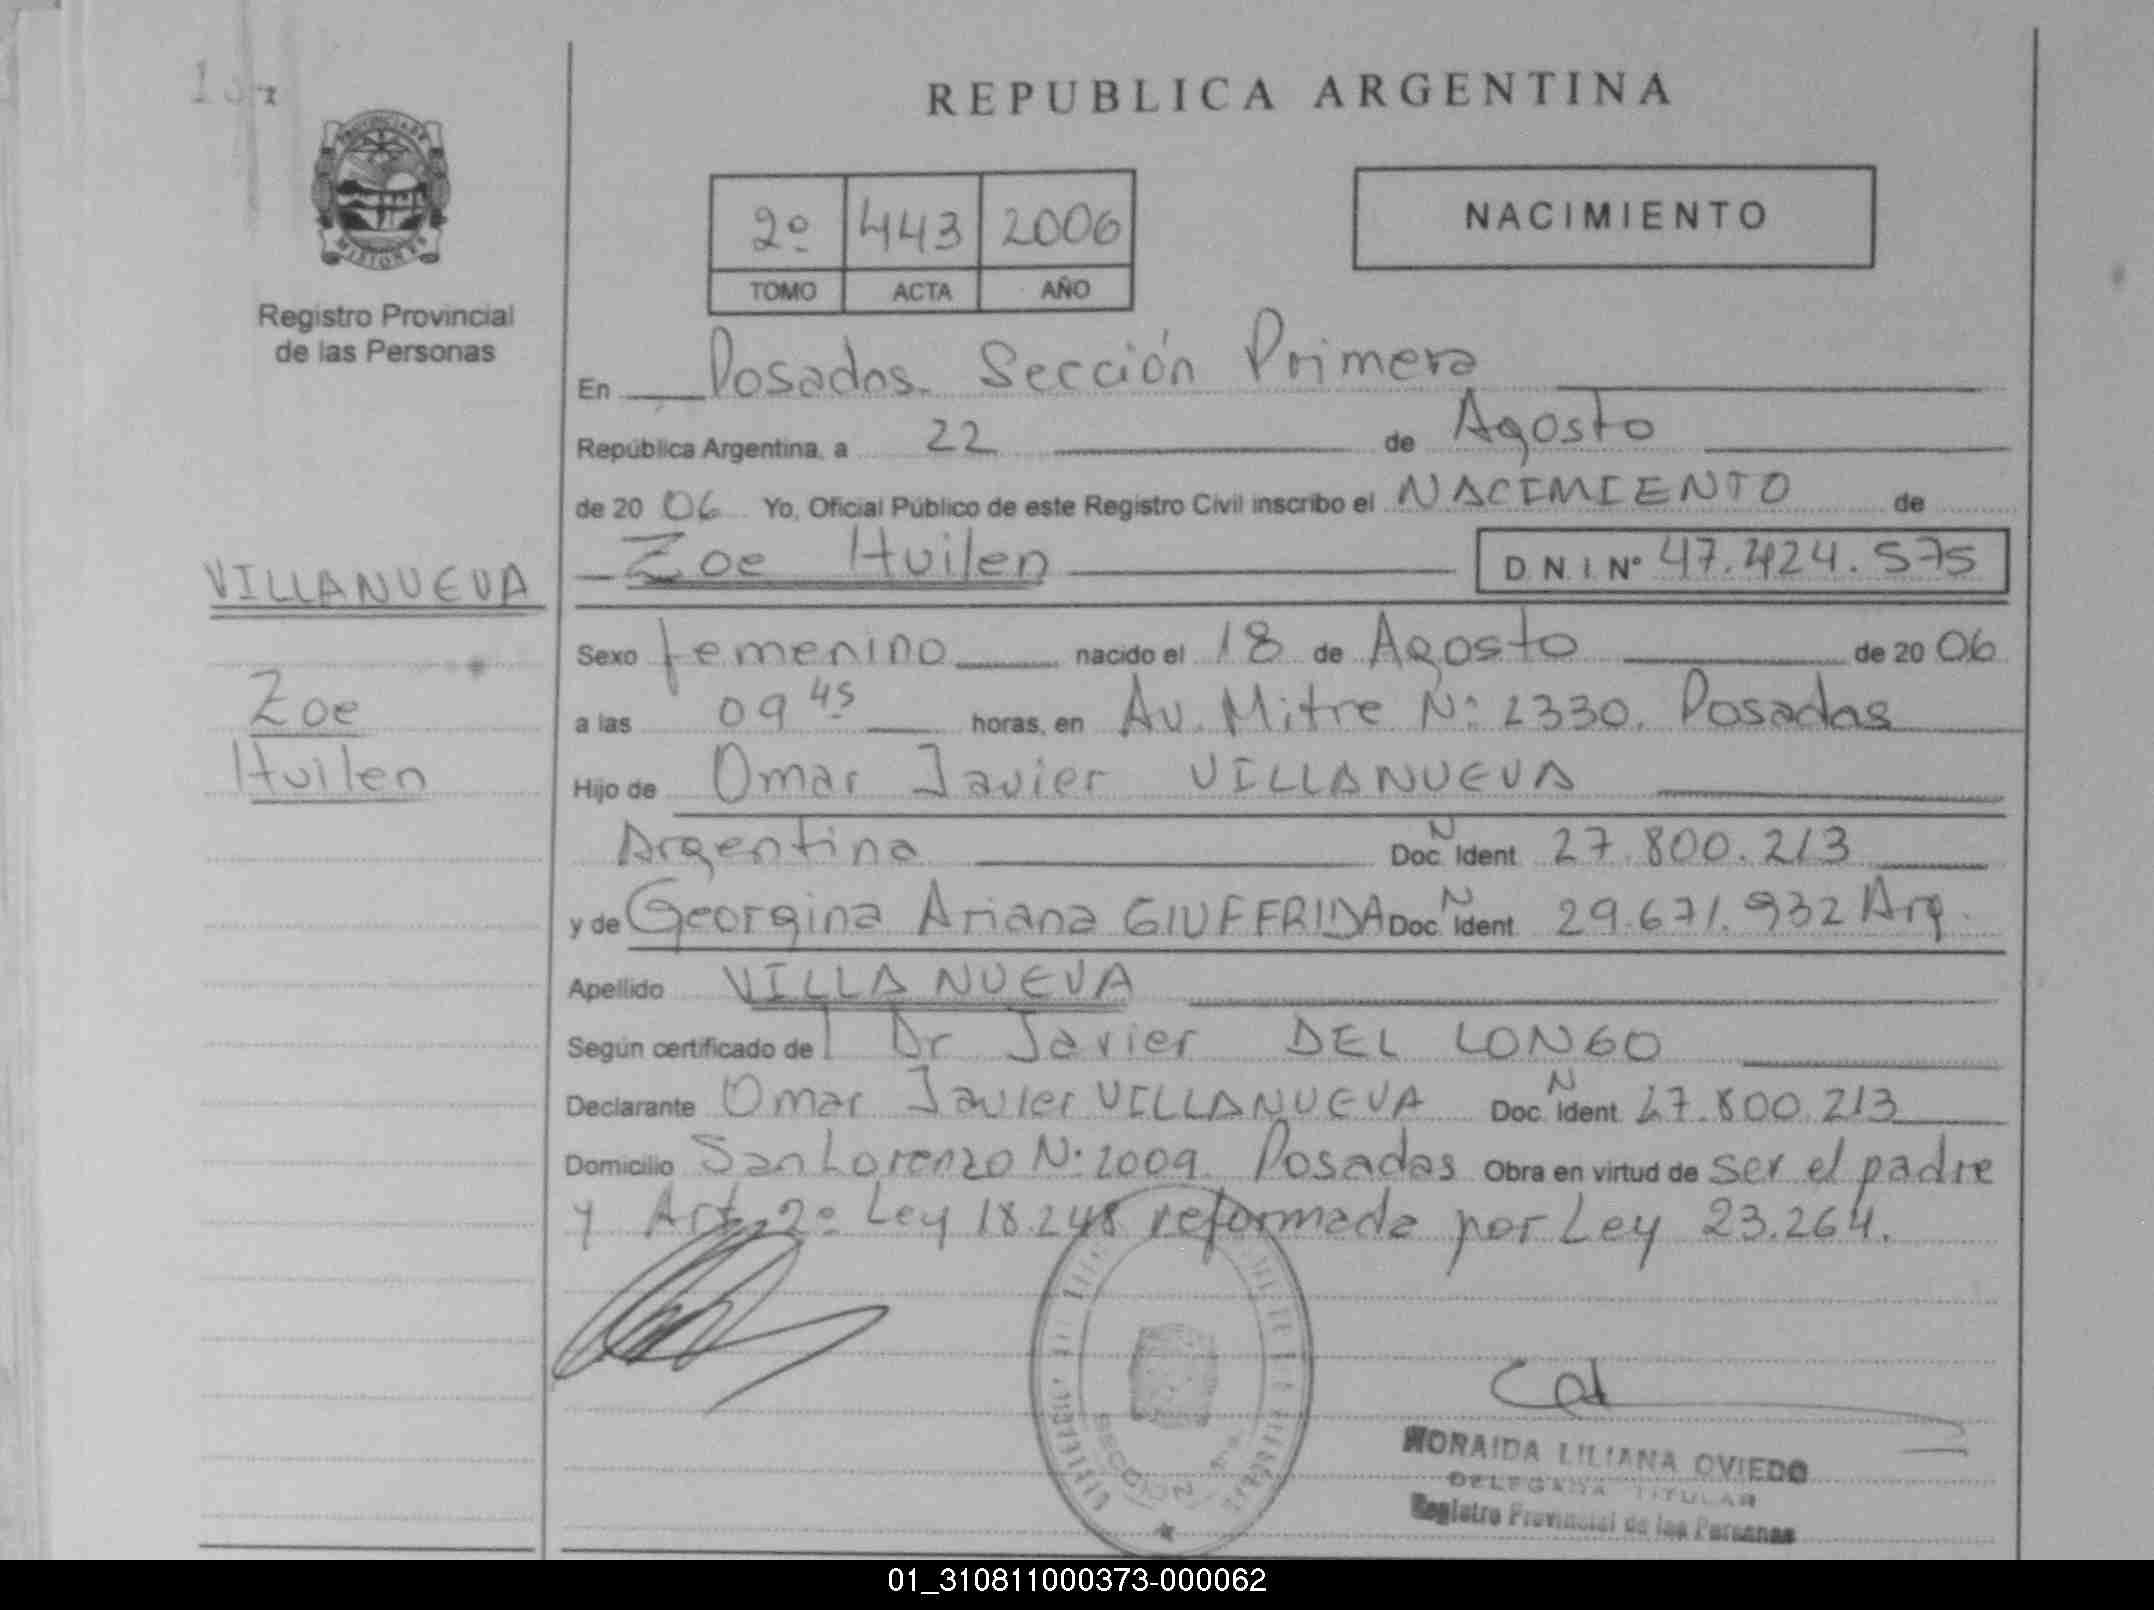 PROVINCIA DE
MISIONES
Registro Provincial
de las Personas
VILLANUEVA
Zoe
Huilen
REPUBLICA ARGENTINA
2º 443 2006
TOMO ACTA AÑO
NACIMIENTO
En Posadas. Sección Primera
República Argentina, a 22 de Agosto
de 20 06 Yo, Oficial Público de este Registro Civil inscribo el NACIMIENTO de
Zoe Huilen D.N.I. Nº 47.424.575
Sexo femenino nacido el 18 de Agosto de 20 06
a las 09 45 horas, en Av. Mitre Nº 2330. Posadas
Hijo de Omar Javier VILLANUEVA
Argentina Doc. N Ident 27.800.213
y de Georgina Ariana GIUFFRIDA Doc. N Ident 29.671.932 Arg.
Apellido VILLANUEVA
Según certificado del Dr Javier DEL LONGO
Declarante Omar Javier VILLANUEVA Doc. N Ident 27.800.213
Domicilio San Lorenzo Nº 2009. Posadas Obra en virtud de ser el padre
y Art. 2º Ley 18.248 reformada por Ley 23.264.
SECCION 1ª
LILIANA OVIEDO
DELEGADA TITULAR
Registro Provincial de las Personas
01_310811000373-000062